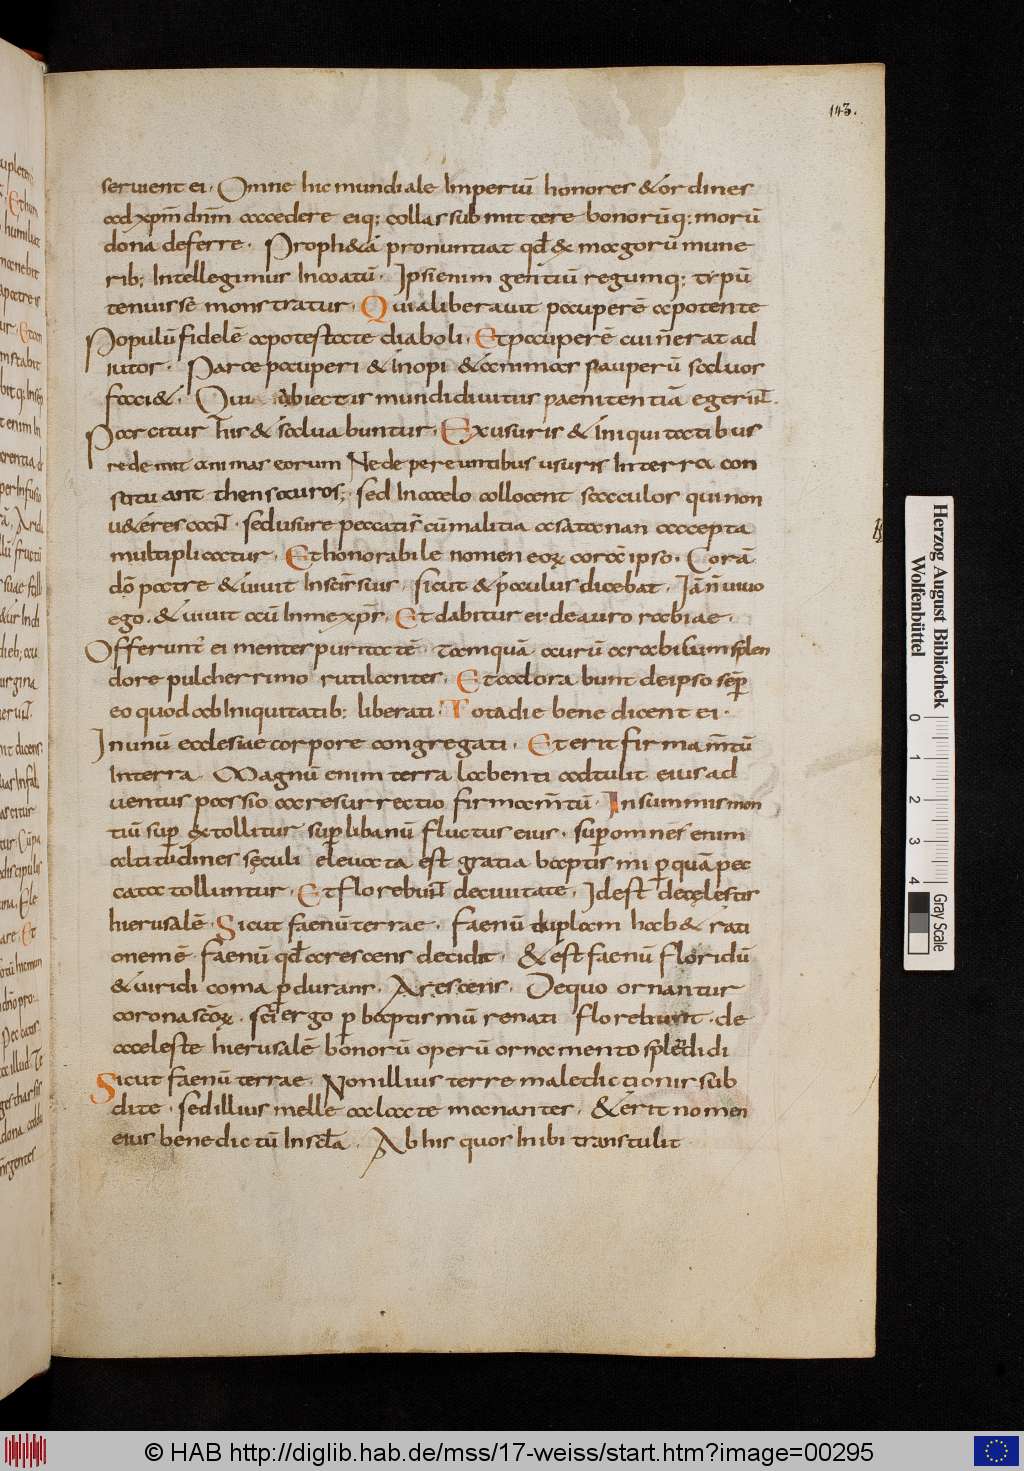 143.
seruient ei. Omne hic mundiale Imperiū honores & ordines
ad xpm̄ dnm̄ accedere eiq; colla submittere bonorūq; morū
dona deferre. Proph&ā pronuntiat qđ & magorū mune
rib; Intellegimus Incoatū. Ipsi enim gentiū regumq; tipū
tenuissē monstratur. Quia liberauit pauperē a potente
Populū fidelē a potestate diaboli. Et pauperē cui n̄ erat ad
iutor. Parc& pauperi & inopi & animas pauperū saluas
faci&. Qui abiectis mundi diuitiis paenitentiā egerin̄t.
Pascitur his & saluabuntur. Ex usuris & iniquitatibus
redemit animas eorum Ne de pereuntibus usuris In terra con
stituant thensauros; sed In caelo collocent saeculos qui non
u&eresca\n̄t. sed usure peccatis cū malitia a satanan accepta
multiplicatur. Et honorabile nomen eoꝝ corā ipso. Corā
dō patre & uiuit In sc̄is suis. sicut & paulus dicebat. Iā n̄ uiuo
ego. & uiuit aū In me xp̄s. Et dabitur ei de auro arabiae.
Offerunt ei mentes puritatē tamquā aurū arabicum splen
dore pulcherrimo rutilantes. Et adorabunt de ipso sēp
eo quod ab Iniquitatib; liberati. Tota die benedicent ei.
In unū ecclesiae corpore congregati. Et erit firmam̄tū
In terra. Magnū enim terra labenti adtulit eius ad
uentus passio ac resurrectio firmam̄tū. In summis mon
tiū suꝑ extollitur suꝑ libanū fluctus eius. suꝑ omnes enim
altitudines sęculi eleuata est gratia baptismi ꝑ quā pec
cata tolluntur. Et florebun̄t de ciuitate. Id est de cęlestis
hierusalē. Sicut faenū terrae. faenū duplam hab& rati
onemē. faenū qđ arescens decidit. & est faenū floridū
& uiridi coma ꝑdurans. Arescens. De quo ornantur
corona sc̄oꝝ. sc̄i ergo ꝑ baptismū renati florebunt de
caeleste hierusalē bonorū operū ornamento splēdidi
Sicut faenū terrae. Non illius terre maledictionis sub
dite. sed illius melle ac lacte manantes. & erit nomen
eius benedictū In scl̄a. Ab his quos Inibi transtulit
Herzog August Bibliothek
Wolfenbüttel
0 1 2 3 4
Gray Scale
© HAB http://diglib.hab.de/mss/17-weiss/start.htm?image=00295